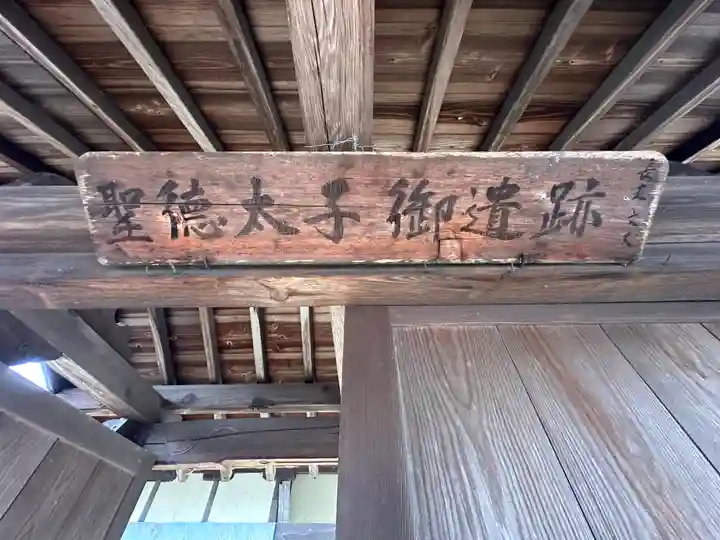 聖徳太子御遺跡